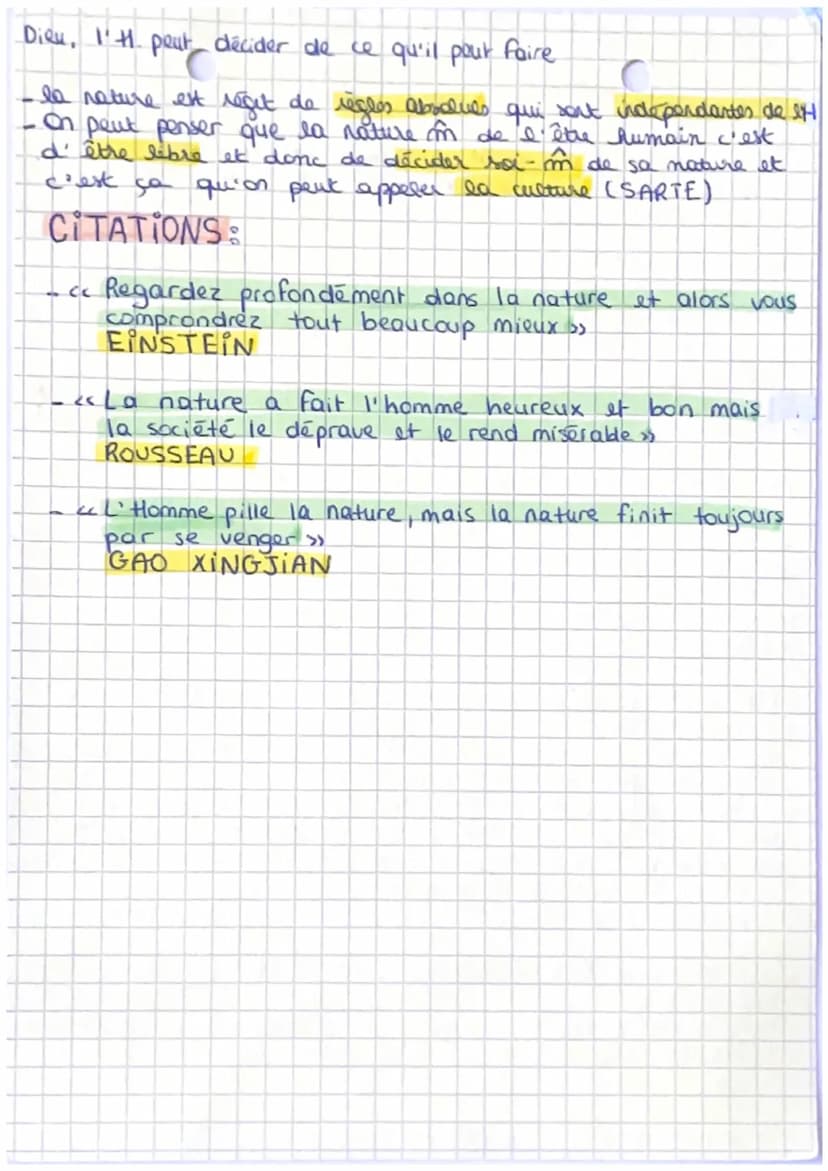 Dieu, l'H. peut décider de ce qu'il peut faire
- la nature est régit de règles absolues qui sont indépendantes de l'H
- On peut penser que la nature m̂ de l'être humain c'est
d'être libre et donc de décider soi-m̂ de sa nature et
c'est ça qu'on peut appeler la culture (SARTE)
CITATIONS:
- << Regardez profondément dans la nature et alors vous
comprondrez tout beaucoup mieux >>
EINSTEIN
- << La nature a fait l'homme heureux et bon mais
la société le déprave et le rend misérable >>
ROUSSEAU
- << L'Homme pille la nature, mais la nature finit toujours
par se venger >>
GAO XINGJIAN